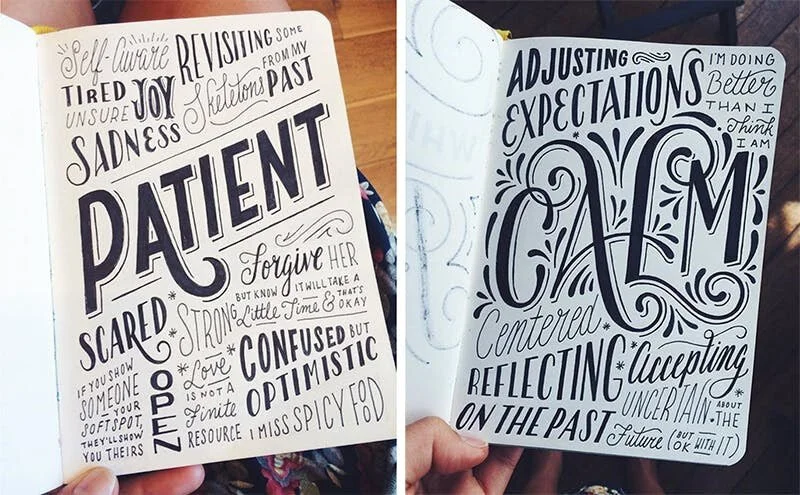 Self-Aware
TIRED JOY
UNSURE
SADNESS
REVISITING SOME
Skeletons FROM MY
PAST
PATIENT
Forgive HER
BUT KNOW IT WILL TAKE A
Little Time & THAT'S OKAY
SCARED
STRONG
CONFUSED BUT
OPTIMISTIC
IF YOU SHOW
SOMEONE
YOUR
SOFT SPOT,
THEY'LL SHOW
YOU THEIRS
OPEN
Love
IS NOT A
Finite
RESOURCE
I MISS SPICY FOOD
ADJUSTING
EXPECTATIONS
I'M DOING
Better
THAN I
Think
I AM
CALM
Centered
REFLECTING
ON THE PAST
Accepting
UNCERTAIN ABOUT THE
Future (BUT OK WITH IT)